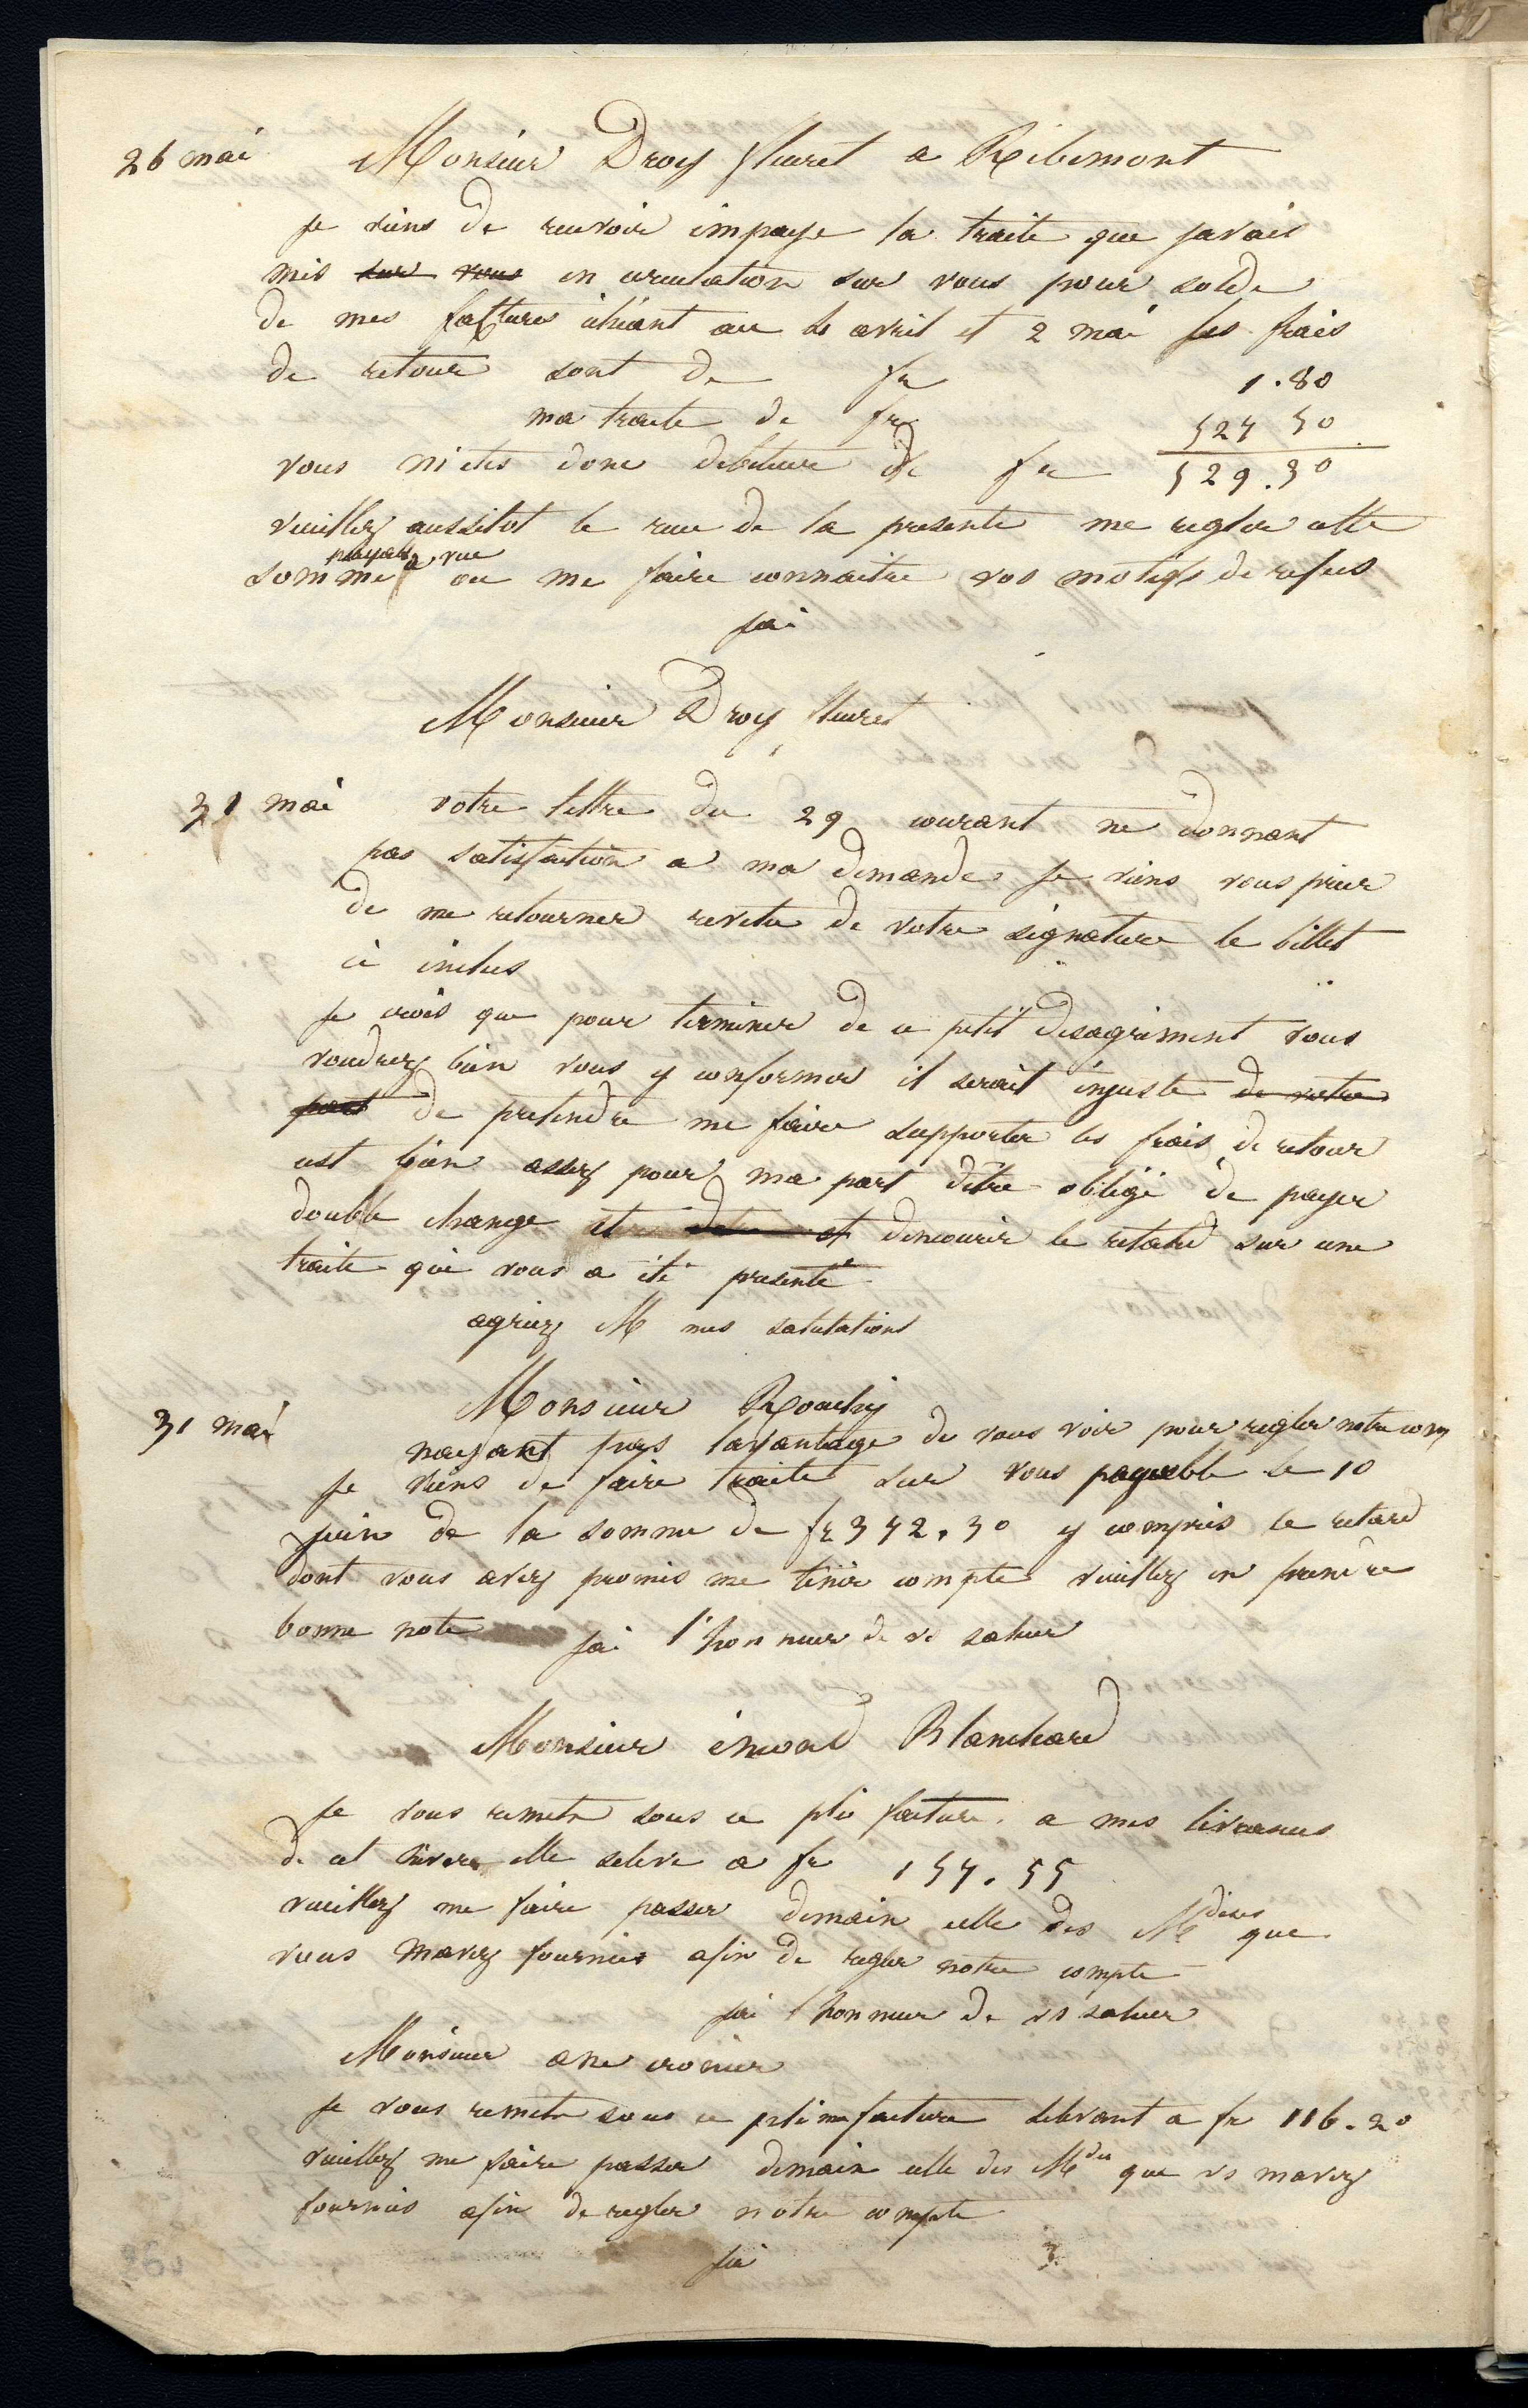 26 mai Monsieur Droy fleuret a Ribemont
je viens de recevoir impaye la traite que javais
mis sur vous en circulation sur vous pour solde
de mes factures écheant au avril et 2 mai les frais
de retour sont de fr 1.80
ma traite de fr 527 50
vous m'etes donc debiteur de fr 529.30
veuillez aussitot le recu de la presente me regler cette
payable a vue
somme ou me faire connaitre vos motifs de refus
jai
Monsieur Droy fleuret
31 mai votre lettre du 29 courant ne donnant
pas satisfaction a ma demande je viens vous prier
de me retourner revetu de votre signature le billet
ci inclus
je crois que pour terminer de ce petit desagriment vous
voudrez bien vous y conformer il serait injuste de votre
part de pretendre me faire supporter les frais de retour
cest bien assez pour ma part dêtre obligé de payer
double change et et dencourir le retard sur une
traite qui vous a été presenté
agriez M mes salutations
Monsieur
31 mai nayant pas lavantage de vous voir pour regler notre com
je viens de faire traite sur vous payable le 10
juin de la somme de fr 342.30 y compris le retard
dont vous avez promis me tenir compte veuillez en prendre
bonne note jai l'honneur de vs saluer
Monsieur Blanchard
je vous remets sous ce pli facture a mes livraisons
de cet hiver elle seleve a fr 157.55
veuillez me faire passer demain celle des Mdises que
vous mavez fournies afin de regler notre compte
jai lhonneur de vs saluer
Monsieur cronier
je vous remets sous ce pli ma facture selevant a fr 116.20
veuillez me faire passer demain celle des Mdes que vs mavez
fournies afin de regler notre compte
jai